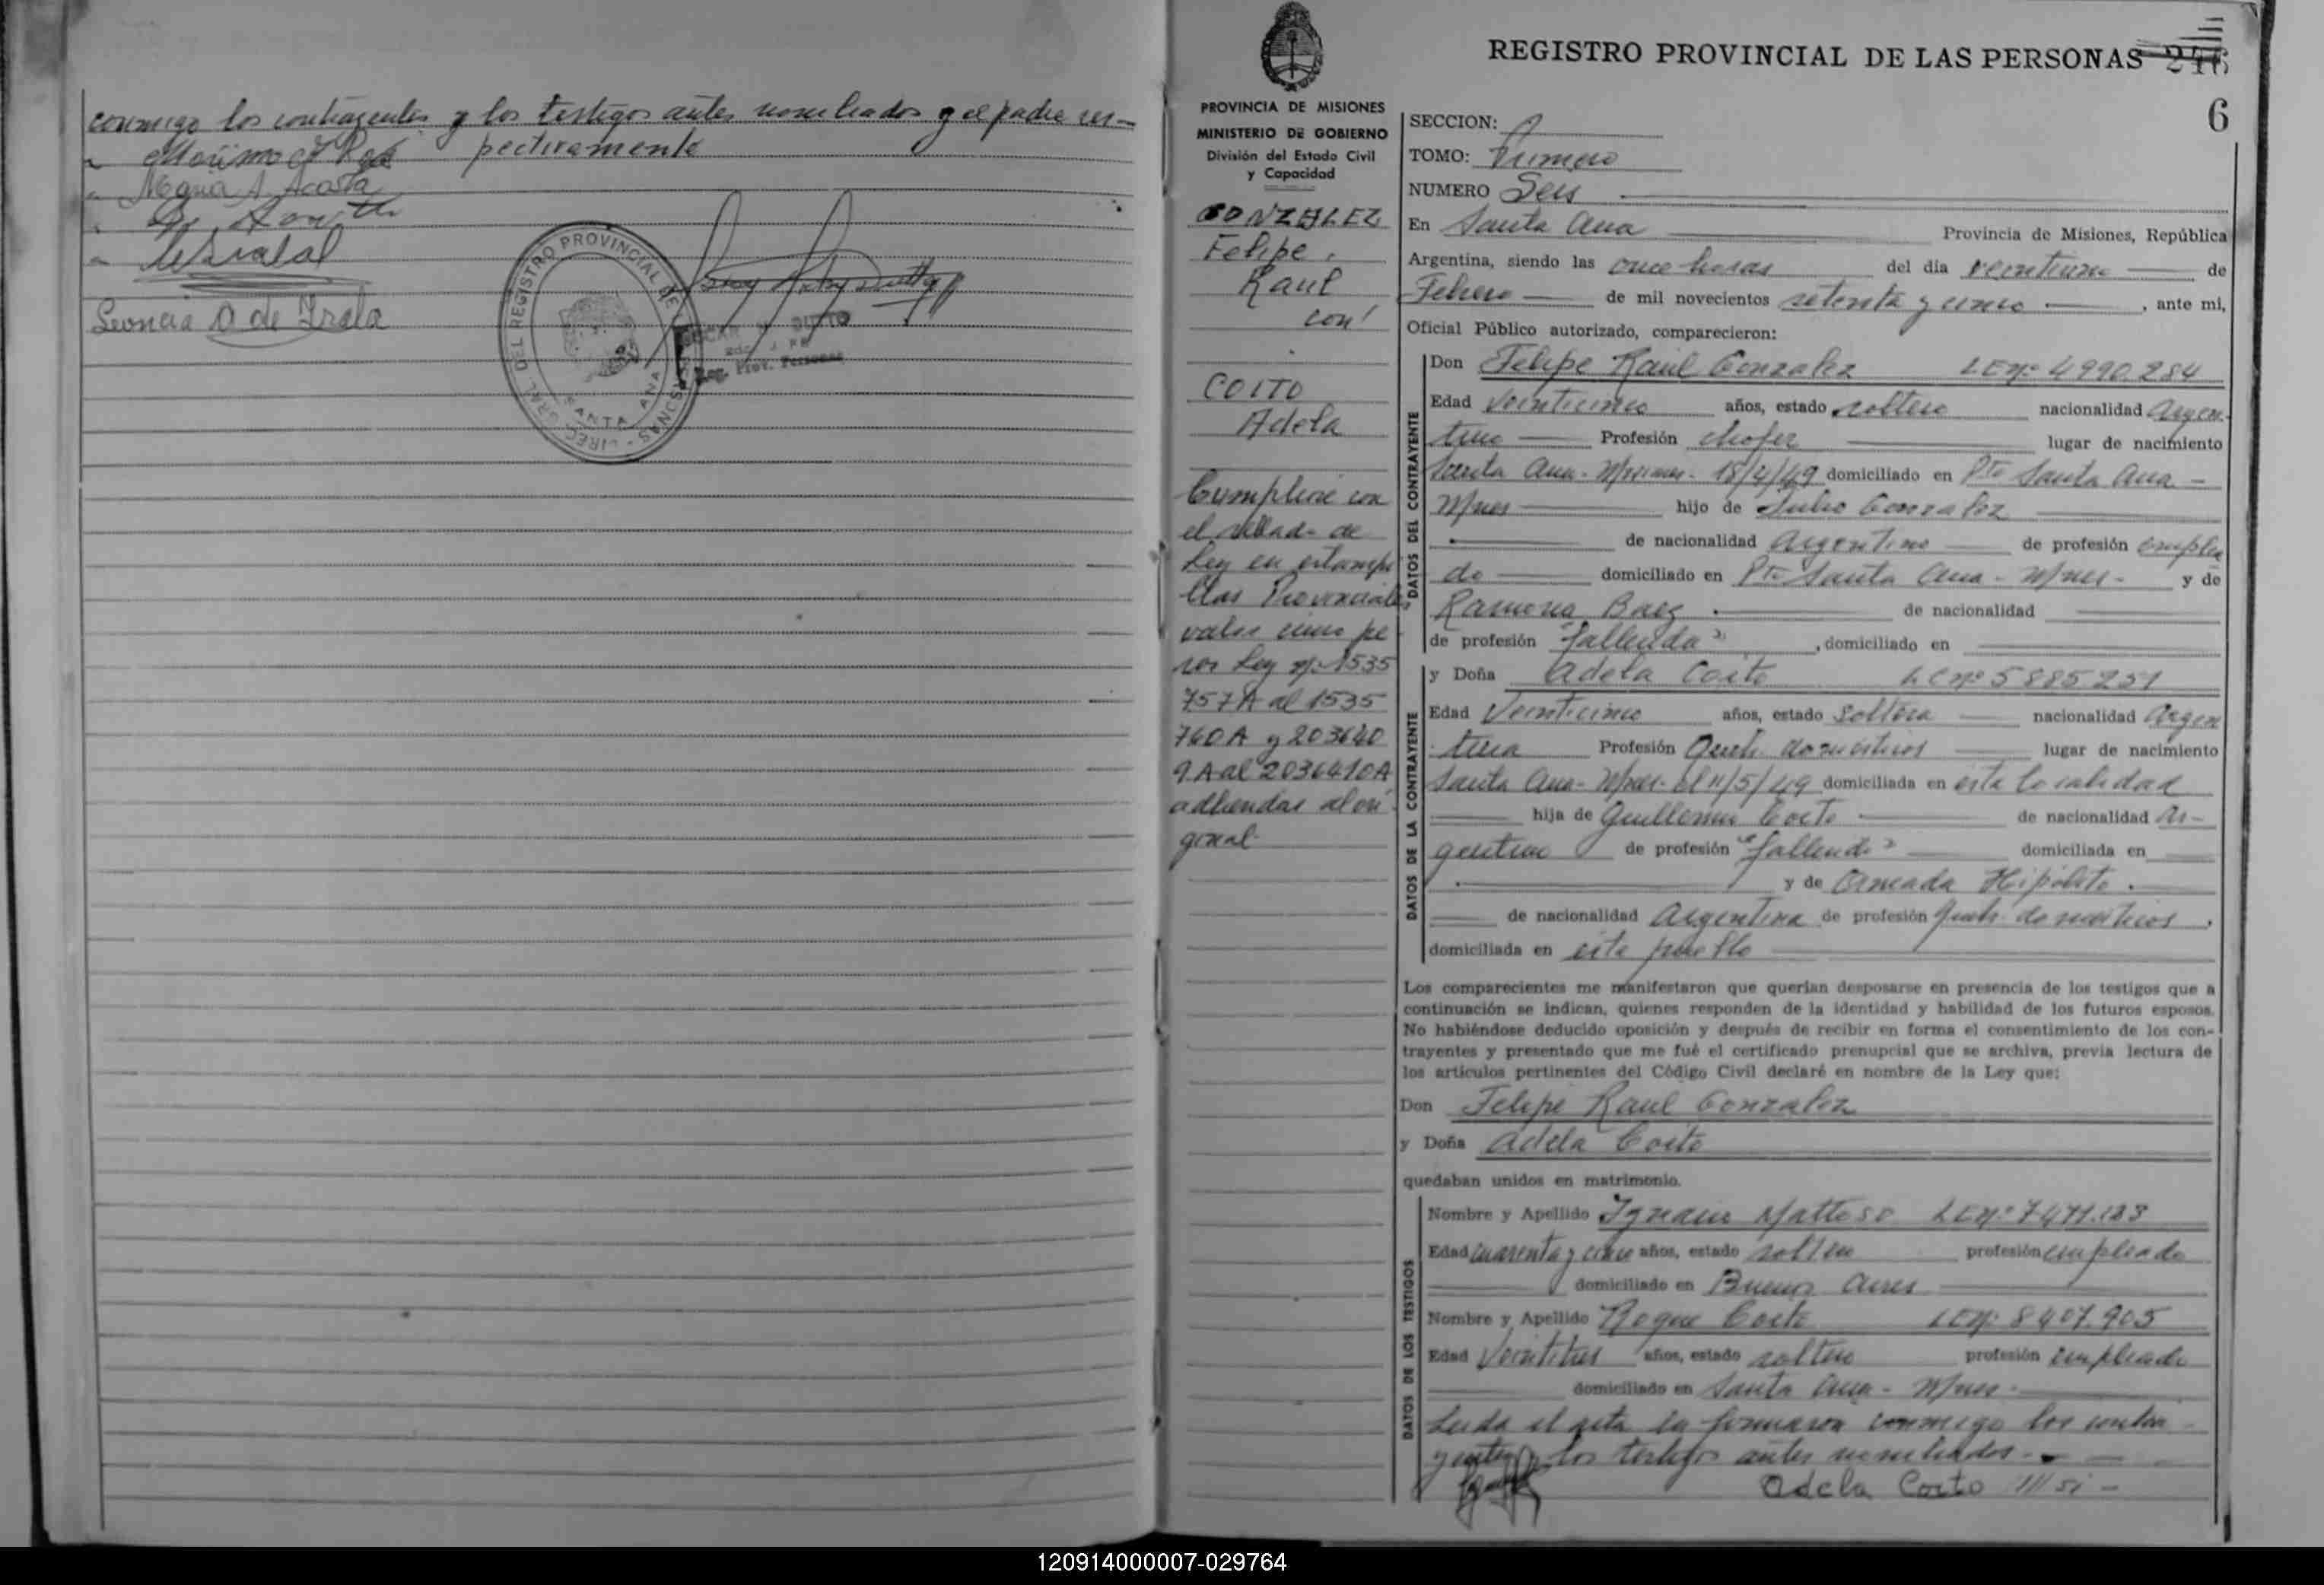 conmigo los contrayentes y los testigos antes nombrados y el padre res-
pectivamente
Maria A. Acosta
Leoncia O de Irala
DIREC. GRAL. DEL REGISTRO PROVINCIAL DE PERSONAS
SANTA ANA
Reg. Prov. Personas
REGISTRO PROVINCIAL DE LAS PERSONAS 246
6
PROVINCIA DE MISIONES
MINISTERIO DE GOBIERNO
División del Estado Civil
y Capacidad
GONZALEZ
Felipe
Raul
con
COITO
Adela
Cumpliré con
el sellado de
Ley en estampi
llas Provinciales
valor cinco pe
sos Ley nº 1535
757A al 1535
760A y 203640
9A al 2036410A
adheridas al ori
ginal
SECCION:
TOMO: Primero
NUMERO Seis
En Santa Ana Provincia de Misiones, República
Argentina, siendo las once horas del día veintiuno de
Febrero de mil novecientos setenta y cinco, ante mi,
Oficial Público autorizado, comparecieron:
DATOS DEL CONTRAYENTE
Don Felipe Raul Gonzalez LEnº 4990.284
Edad veinticinco años, estado soltero nacionalidad Argen-
tino Profesión chofer lugar de nacimiento
Santa Ana - Misiones - 18/4/49 domiciliado en Pto Santa Ana -
Mnes hijo de Julio Gonzalez
de nacionalidad Argentino de profesión emplea
do domiciliado en Pto Santa Ana - Mnes - y de
Ramona Baez de nacionalidad
de profesión "fallecida", domiciliado en
DATOS DE LA CONTRAYENTE
y Doña Adela Coito LCnº 5885251
Edad Veinticinco años, estado Soltera nacionalidad Argen
tina Profesión Queh. domésticos lugar de nacimiento
Santa Ana - Mnes - el 11/5/49 domiciliada en esta localidad
hija de Guillermo Coito de nacionalidad Ar-
gentino de profesión "fallecido" domiciliada en
y de Hipólito
de nacionalidad Argentina de profesión Queh. domésticos,
domiciliada en este pueblo
Los comparecientes me manifestaron que querían desposarse en presencia de los testigos que a
continuación se indican, quienes responden de la identidad y habilidad de los futuros esposos.
No habiéndose deducido oposición y después de recibir en forma el consentimiento de los con-
trayentes y presentado que me fué el certificado prenupcial que se archiva, previa lectura de
los artículos pertinentes del Código Civil declaré en nombre de la Ley que:
Don Felipe Raul Gonzalez
y Doña Adela Coito
quedaban unidos en matrimonio.
DATOS DE LOS TESTIGOS
Nombre y Apellido Ignacio Mattoso LEnº 7471.183
Edad cuarenta y cinco años, estado soltero profesión empleado
domiciliado en Buenos Aires
Nombre y Apellido Roque Coito LEnº 8407.905
Edad Veintitres años, estado soltero profesión empleado
domiciliado en Santa Ana - Mnes -
Leida el acta la firmaron conmigo los contra
yentes y los testigos antes nombrados -
Adela Coito
120914000007-029764